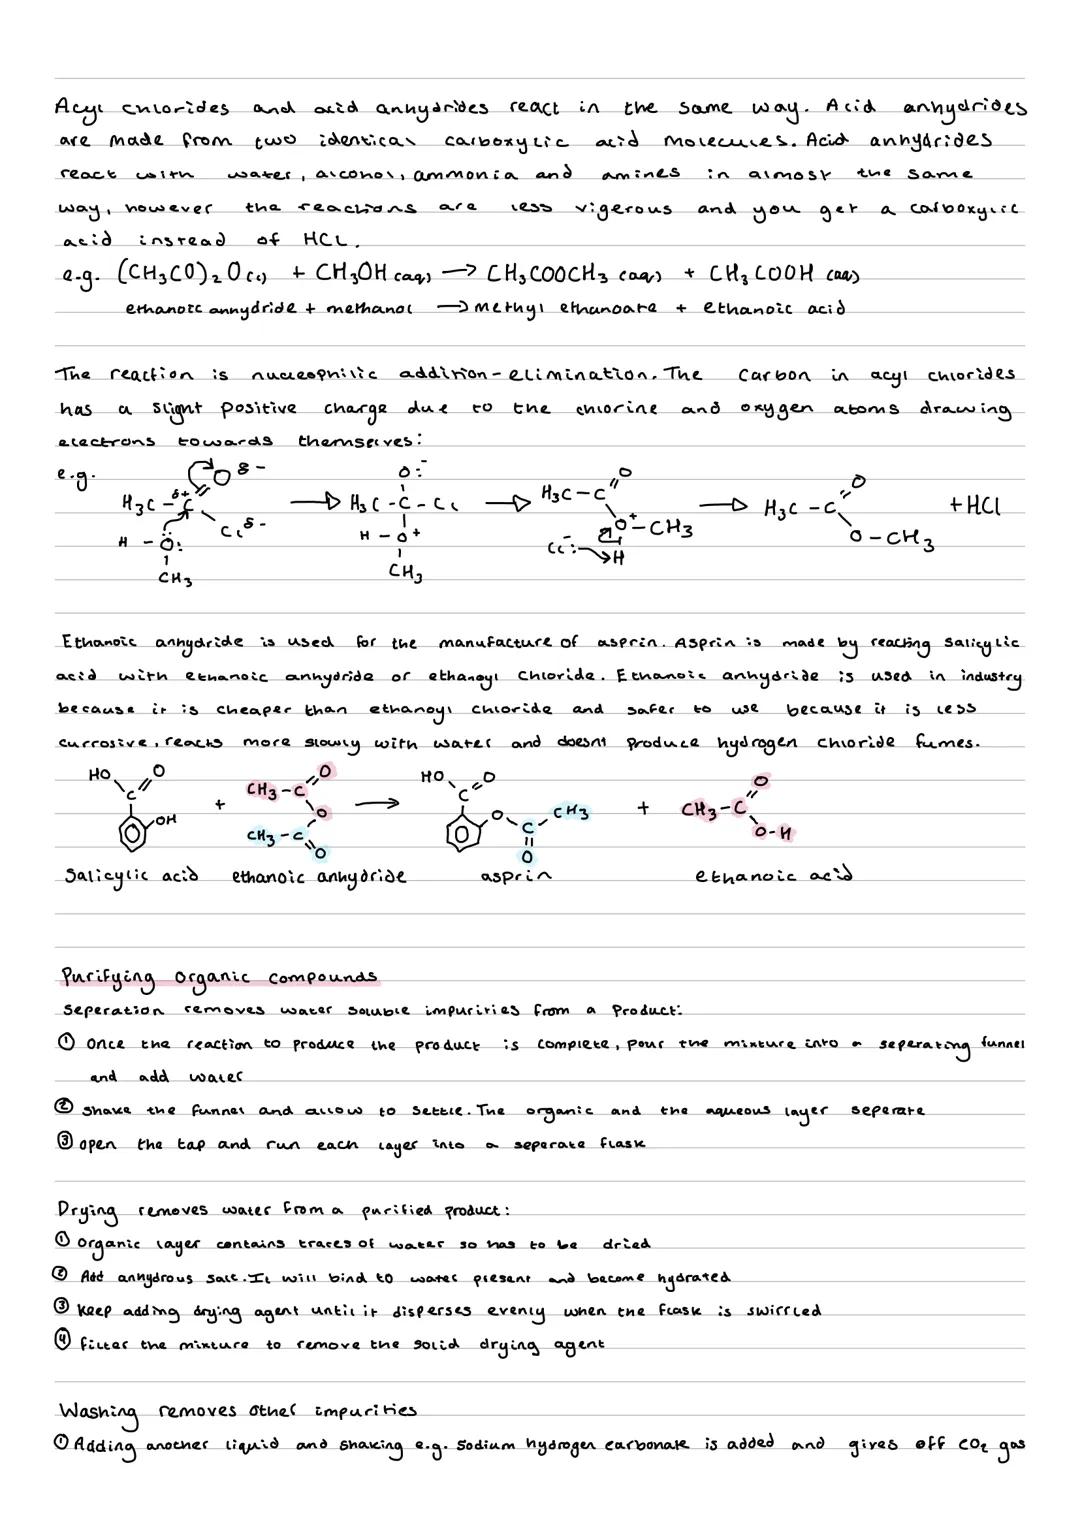 Acyl chlorides and acid anhydrides react in the same way. Acid anhydrides
are made from two identical carboxylic acid molecules. Acid anhydrides
react with water, alcohol, ammonia and amines in almost the same
way, however the reactions are less vigerous and you get a carboxylic
acid instead of HCl.
e.g. (CH₃CO)₂O(l) + CH₃OH(aq) → CH₃COOCH₃(aq) + CH₃COOH(aq)
ethanoic anhydride + methanol → methyl ethanoate + ethanoic acid
The reaction is nucleophilic addition-elimination. The carbon in acyl chlorides
has a slight positive charge due to the chlorine and oxygen atoms drawing
electrons towards themselves:
e.g.
O δ- O:⁻ O O
H₃C - C δ+ → H₃C - C - Cl → H₃C - C → H₃C - C + HCl
Cl δ- O⁺ - CH₃ O - CH₃
H - O: H - O⁺ Cl:⁻ H
CH₃ CH₃
Ethanoic anhydride is used for the manufacture of asprin. Asprin is made by reacting salicylic
acid with ethanoic anhydride or ethanoyl chloride. Ethanoic anhydride is used in industry
because it is cheaper than ethanoyl chloride and safer to use because it is less
currosive, reacts more slowly with water and doesnt produce hydrogen chloride fumes.
HO O CH₃ - C O HO O
C OH + O → C O C CH₃ + CH₃ - C O
CH₃ - C O O O - H
salicylic acid ethanoic anhydride asprin ethanoic acid
Purifying organic compounds
Seperation removes water soluble impurities from a product:
① Once the reaction to produce the product is complete, pour the mixture into a seperating funnel
and add water
② Shake the funnel and allow to settle. The organic and the aqueous layer seperate
③ Open the tap and run each layer into a seperate flask
Drying removes water from a purified product:
① Organic layer contains traces of water so has to be dried
② Add anhydrous salt. It will bind to water present and become hydrated
③ Keep adding drying agent until it disperses evenly when the flask is swirled
④ Filter the mixture to remove the solid drying agent
Washing removes other impurities
① Adding another liquid and shaking e.g. sodium hydrogen carbonate is added and gives off CO₂ gas